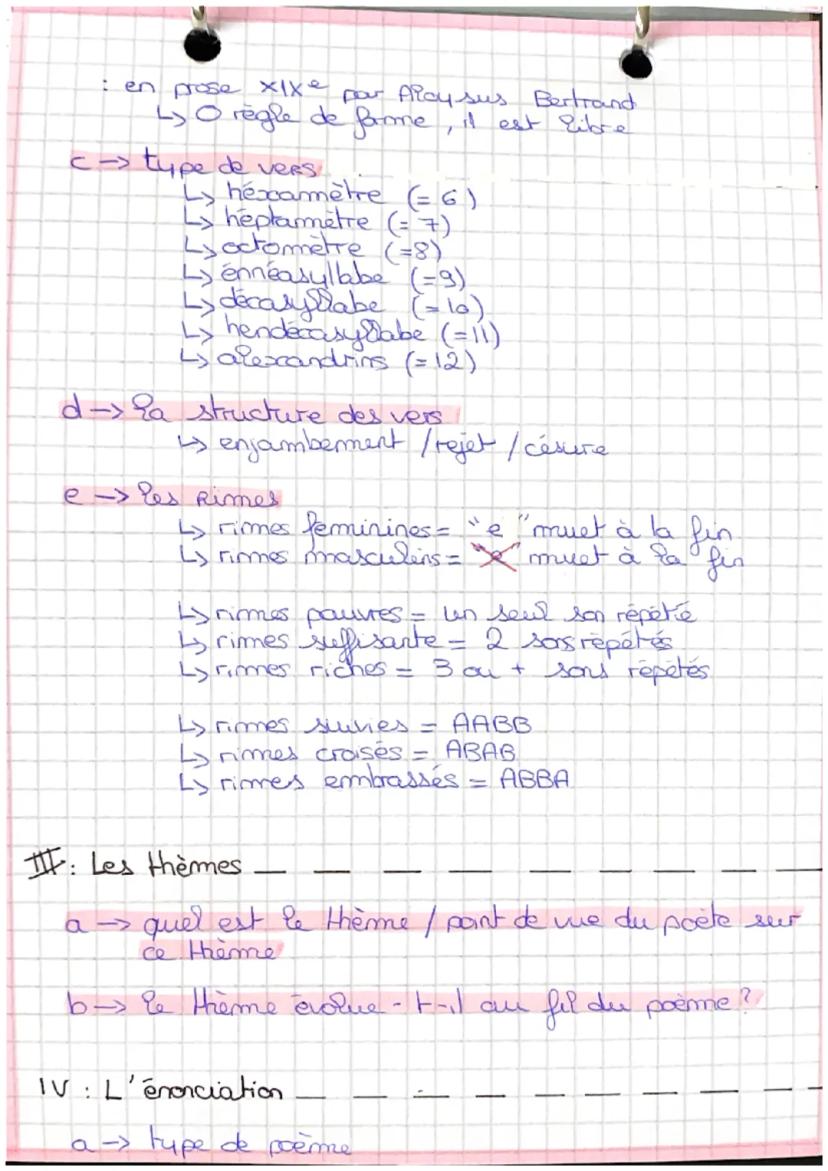 : en prose XIXe par Aloysus Bertrand
↳ 0 règle de forme, il est libre
c → type de vers
↳ héxamètre (= 6)
↳ héptamètre (= 7)
↳ octomètre (=8)
↳ énnéasyllabe (=9)
↳ décasyllabe (=10)
↳ hendécasyllabe (=11)
↳ alexandrins (=12)
d → la structure des vers
↳ enjambement / rejet / césure
e → les rimes
↳ rimes feminines = "e" muet à la fin
↳ rimes masculins = "e" muet à la fin
↳ rimes pauvres = un seul son répété
↳ rimes suffisante = 2 sons répétés
↳ rimes riches = 3 ou + sons répétés
↳ rimes suivies = AABB
↳ rimes croisés = ABAB
↳ rimes embrassés = ABBA
III : Les thèmes
a → quel est le thème / point de vue du poète sur
ce thème
b → le thème évolue-t-il au fil du poème ?
IV : L'énonciation
a → type de poème